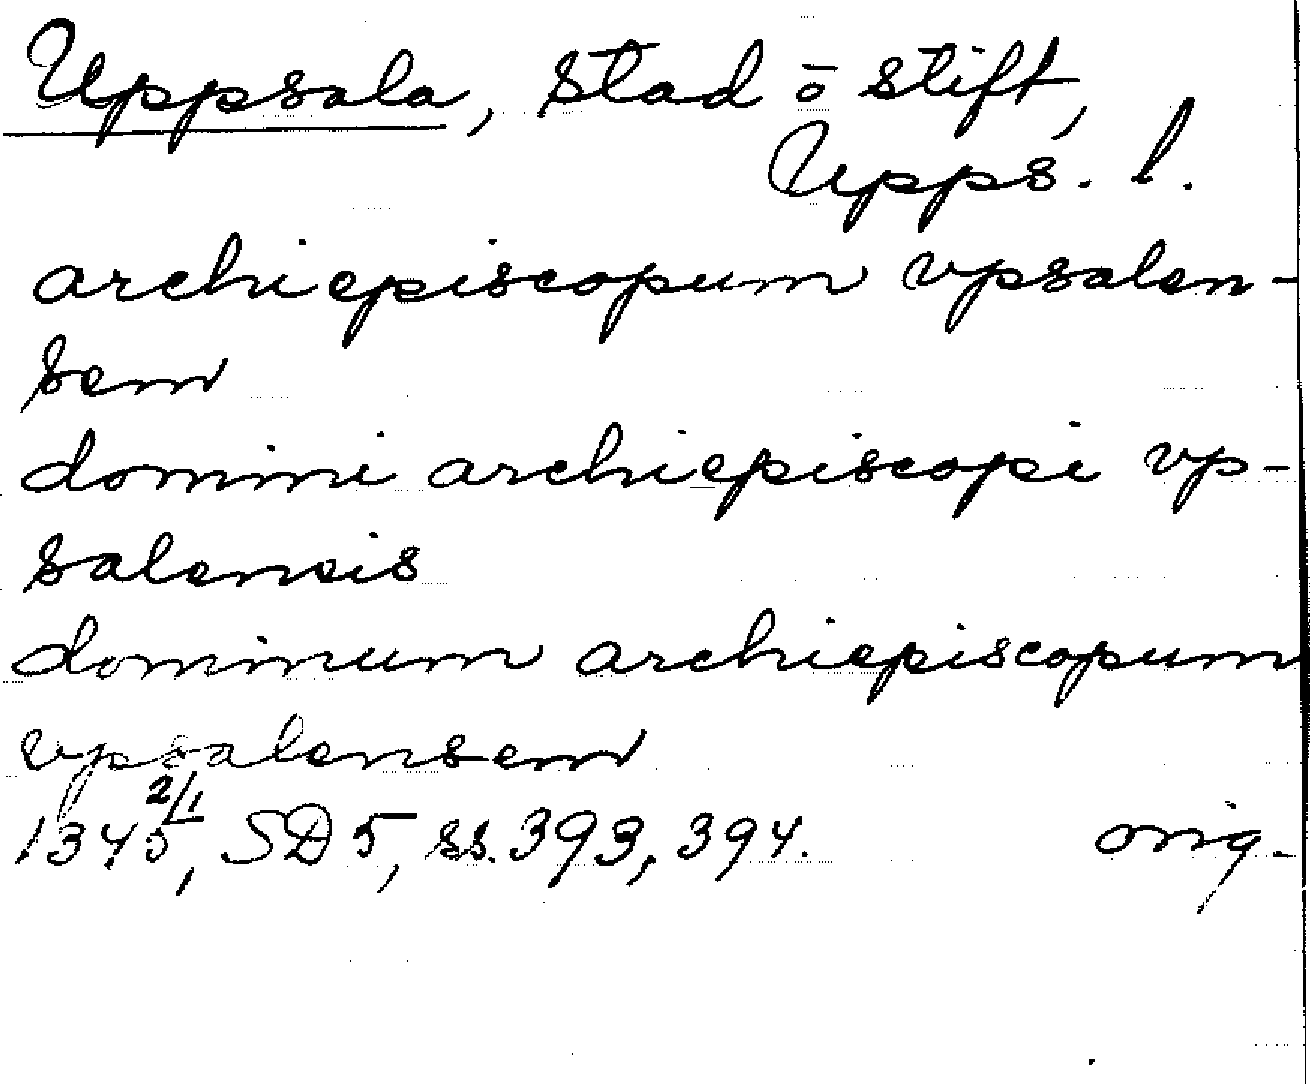 Uppsala, stad o stift,
Upps. l.
archiepiscopum vpsalen-
sem
domini archiepiscopi vp-
salensis
dominum archiepiscopum
vpsalensem
1345 2/1, SD 5, ss. 393, 394. orig.